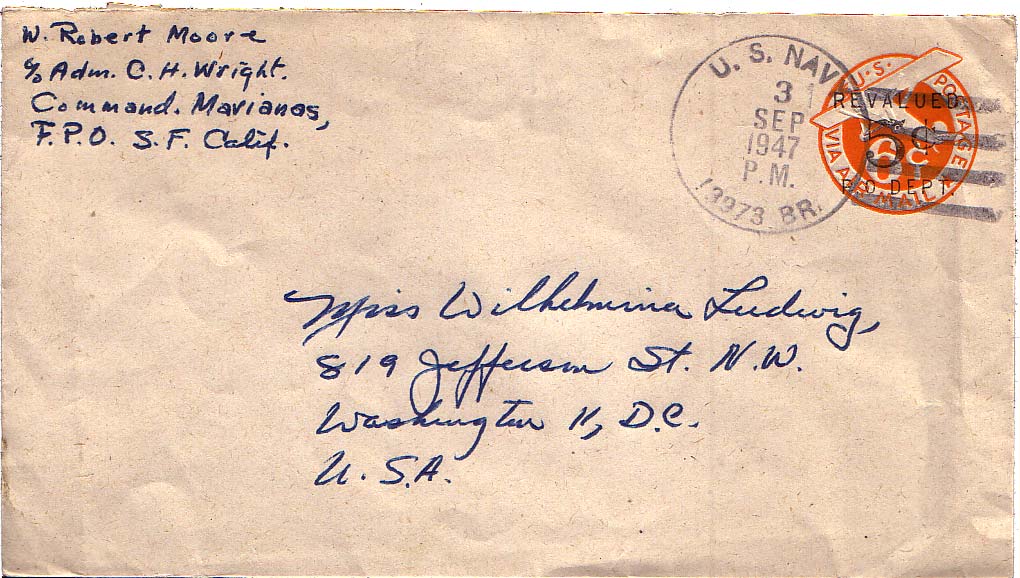 W. Robert Moore
c/o Adm. C. H. Wright.
Command. Marianas,
F.P.O. S.F. Calif.
U. S. NAVY
3
SEP
1947
P.M.
13973 BR.
U.S. POSTAGE
REVALUED
5¢
6¢
P.O. DEPT.
VIA AIR MAIL
Miss Wilhelmina Ludwig,
819 Jefferson St. N.W.
Washington 11, D.C.
U.S.A.